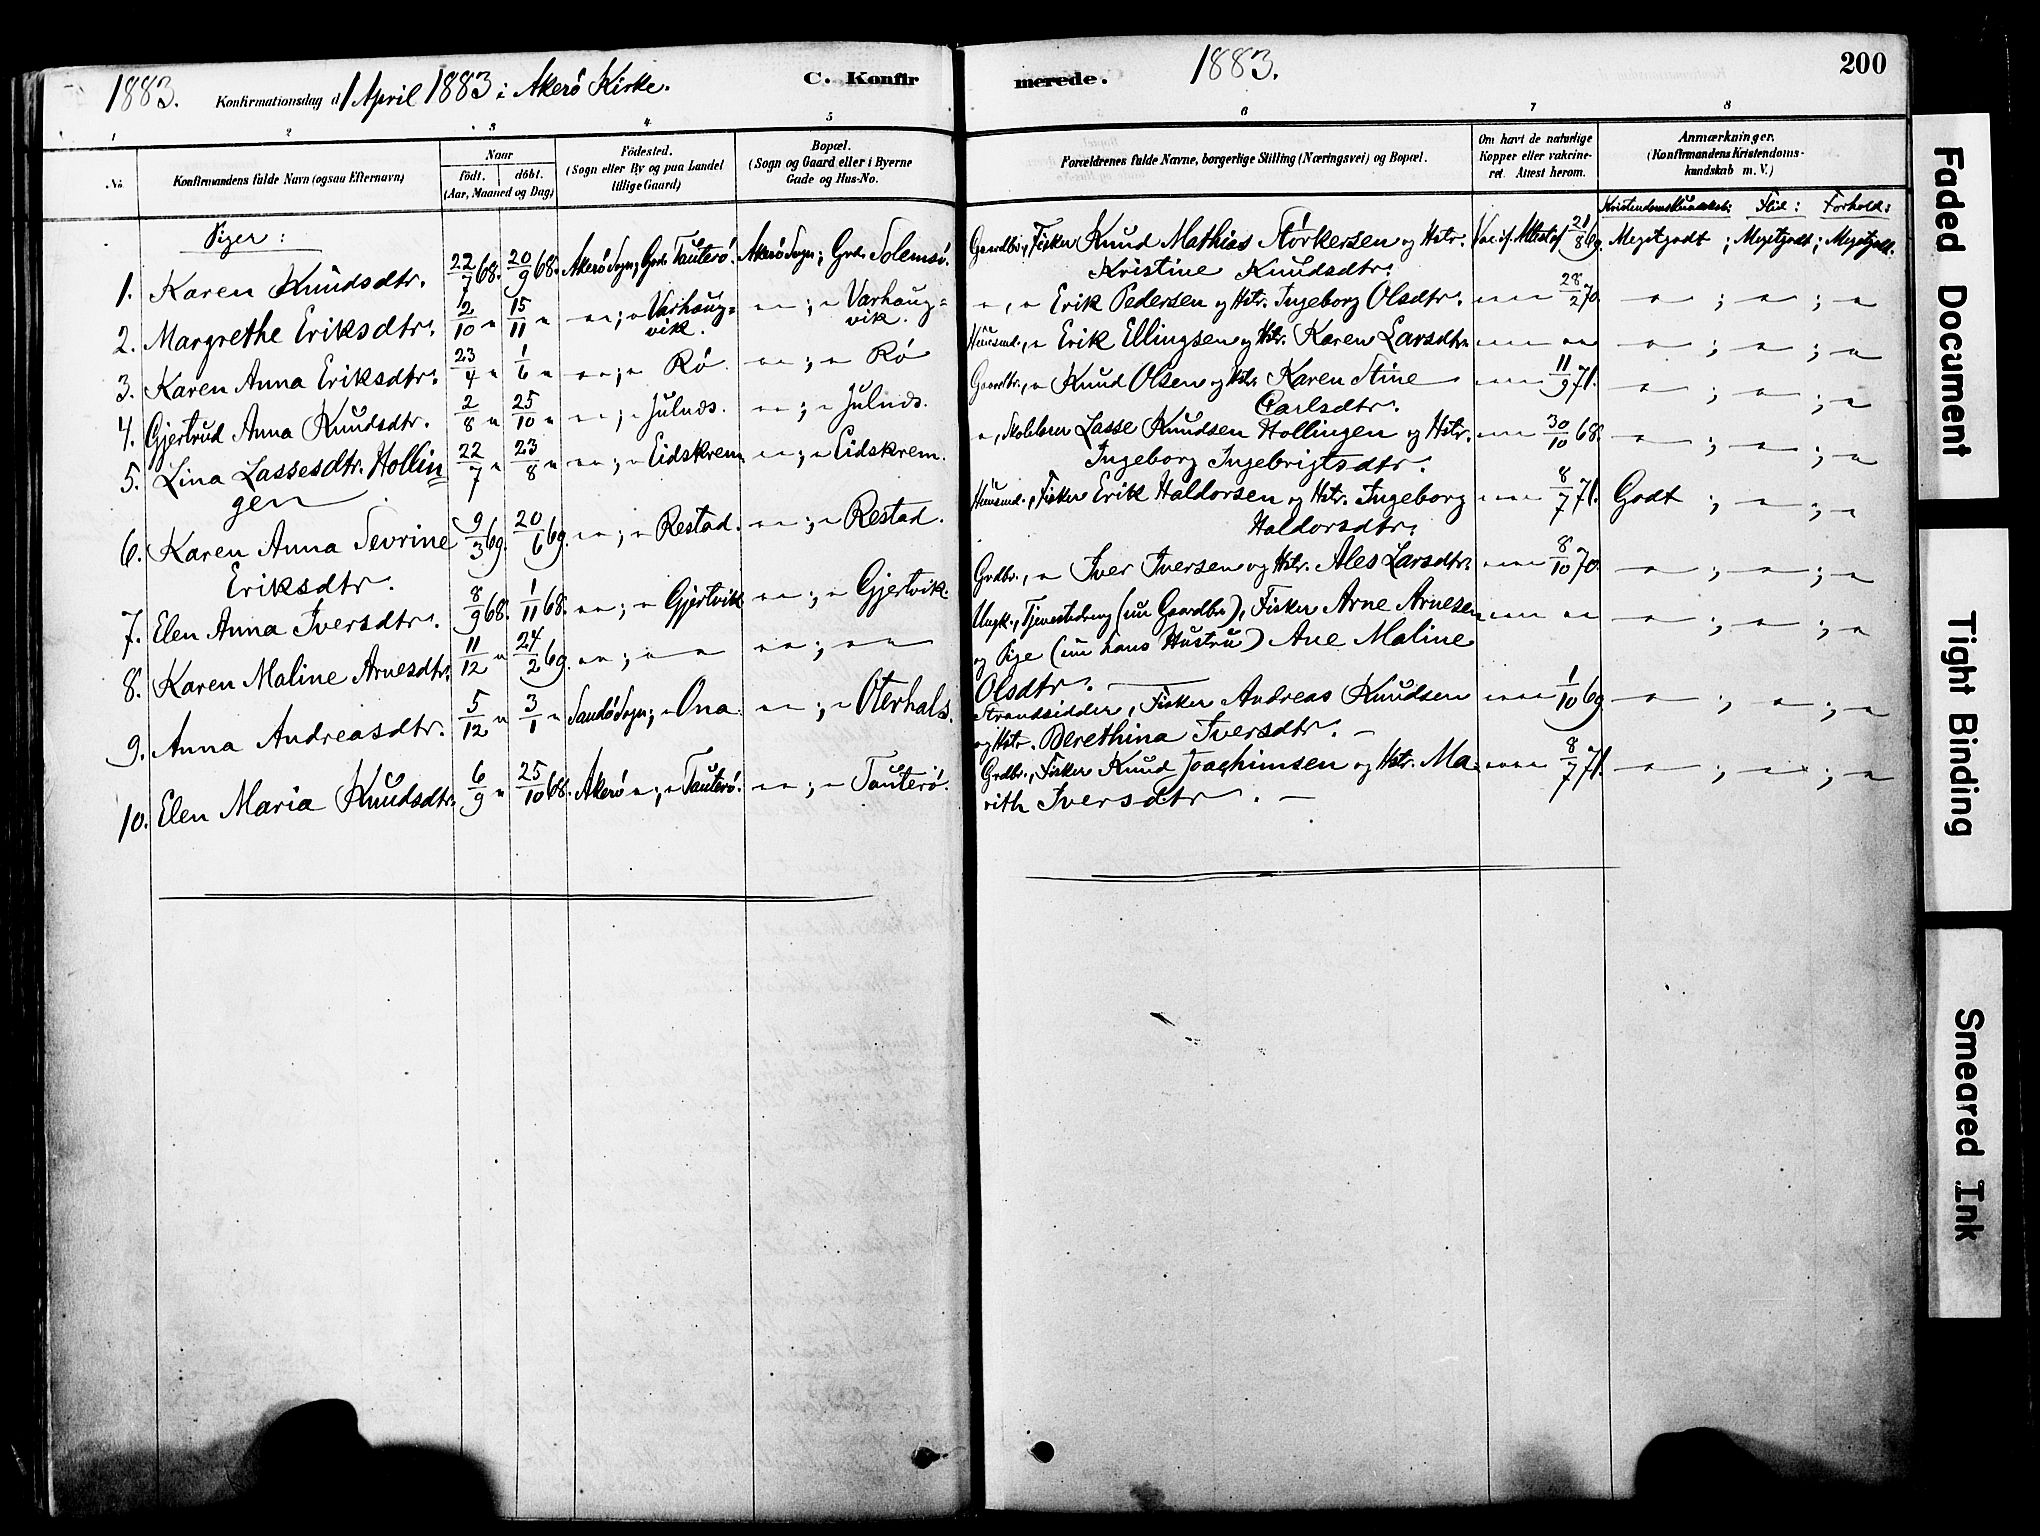 1883. Konfirmationsdag d. 1 April 1883 i Akerø Kirke.
C. Konfir
merede.
1883.
200
1 2 3 4 5 6 7 8
No.
Konfirmandens fulde Navn (ogsaa Efternavn)
Naar
født. døbt.
(Aar, Maaned og Dag)
Fødested.
(Sogn eller By og paa Landet
tillige Gaard)
Bopæl.
(Sogn og Gaard eller i Byerne
Gade og Hus-No.
Forældrenes fulde Navne, borgerlige Stilling (Næringsvei) og Bopæl.
Om havt de naturlige
Kopper eller vakcine-
ret. Attest herom.
Anmærkninger.
(Konfirmandens Kristendoms-
kundskab m. V.)
Kristendomskundskab: Flid: Forhold:
Piger:
1. Karen Knudsdtr. 22/7 68. 20/9 68. Akerø Sogn; Grd. Tauterø. Akerø Sogn; Grd. Solemsø. Gaardbr., Fisker Knud Mathias Størkersen og Hstr. Vac. if. Attest af 21/8 69. Megetgodt; Megetgodt; Megetgodt.
Kristine Knudsdtr.
2. Margrethe Eriksdtr. 2/10 " 15/11 " " "; " Varhaug= " "; " Varhaug= ", " Erik Pedersen og Hstr. Ingeborg Olsdtr. " " " 28/2 70. "; "; "
vik. vik.
3. Karen Anna Eriksdtr. 23/4 " 1/6 " " "; " Rø " "; " Rø Huusmd., " Erik Ellingsen og Hstr. Karen Larsdtr. " " " " " "; "; "
4. Gjertrud Anna Knudsdtr. 2/8 " 25/10 " " "; " Julnds. " "; " Julnds. Gaardbr., " Knud Olsen og Hstr. Karen Stine " " " 11/9 71. "; "; "
Carlsdtr.
5. Lina Lassesdtr. Hollin 22/7 " 23/8 " " "; " Eidskrem " "; " Eidskrem. ", Skolelærer Lasse Knudsen Hollingen og Hstr. " " " 30/10 68. "; "; "
gen Ingeborg Ingebrigtsdtr.
6. Karen Anna Sevrine 9/3 69. 20/6 69. " "; " Restad. " "; " Restad. Huusmd., Fisker Erik Haldorsen og Hstr. Ingeborg " " " 8/7 71. Godt; "; "
Eriksdtr. Haldorsdtr.
7. Elen Anna Iversdtr. 8/9 68. 1/11 68. " "; " Gjertvik " "; " Gjertvik. Grdbr., " Iver Iversen og Hstr. Ales Larsdtr. " " " 8/10 70. "; "; "
8. Karen Maline Arnesdtr. 11/12 " 24/2 69. " "; " " " "; " " Ungk., Tjenestedreng (nu Gaardbr), Fisker Arne Arnesen " " " " " "; "; "
og Pige (nu hans Hustru) Ane Maline
Olsdtr.
9. Anna Andreasdtr. 5/12 " 3/1 " Sandø Sogn; " Ona. " "; " Oterhals. Strandsidder, Fisker Andreas Knudsen " " " 1/10 69 "; "; "
og Hstr. Berethina Iversdtr. –
10. Elen Maria Knudsdtr. 6/9 " 25/10 68. Akerø "; " Tauterø. " "; " Tauterø. Grdbr., Fisker Knud Joachimsen og Hstr. Ma= " " " 8/7 71. "; "; "
rith Iversdtr. –
Faded Document
Tight Binding
Smeared Ink